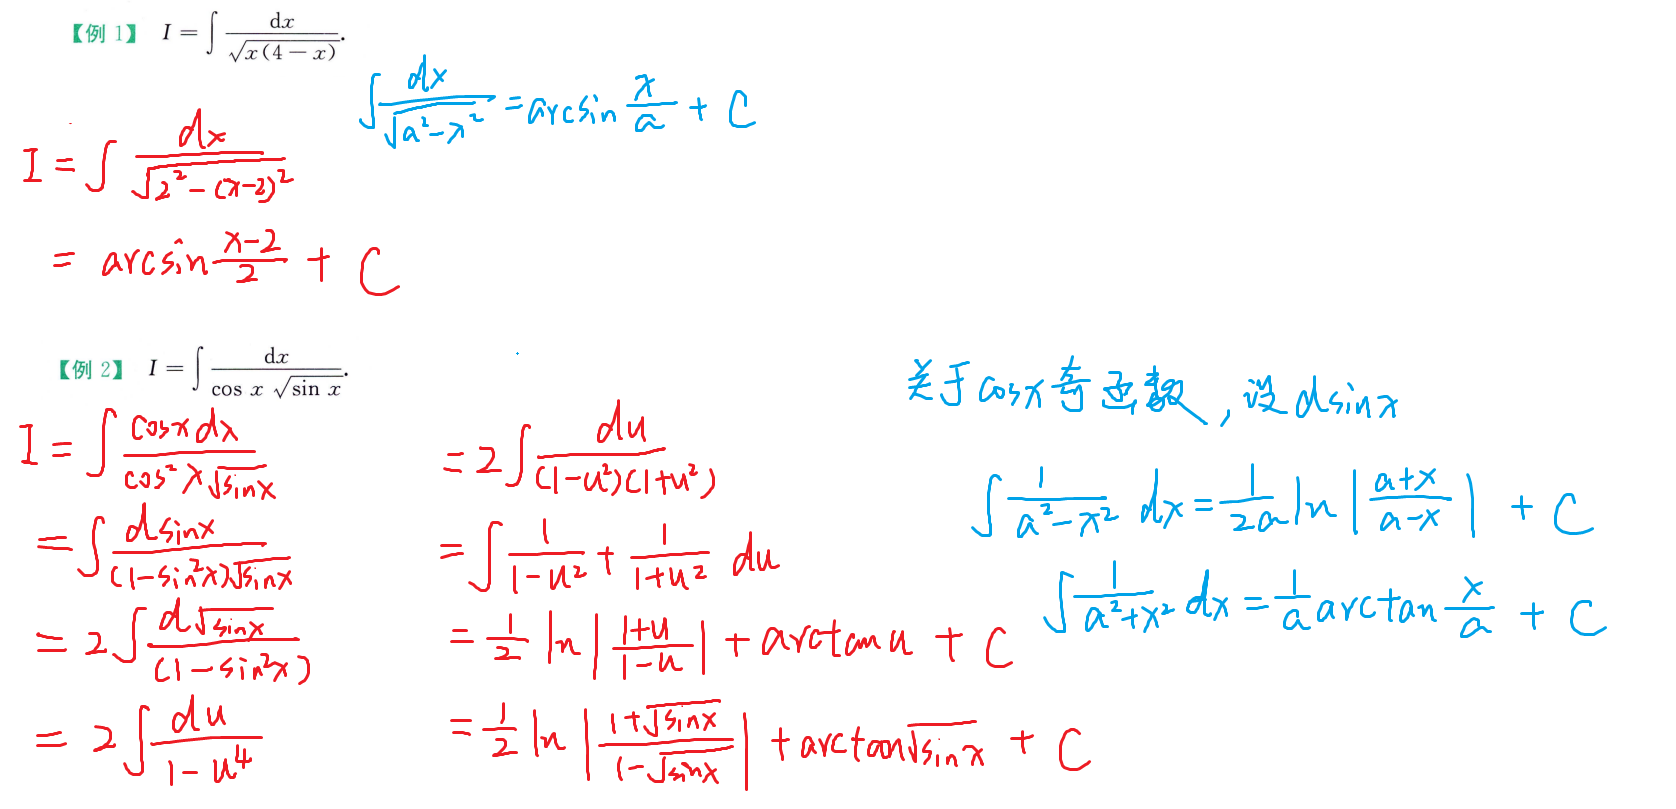 【例 1】 I = ∫ dx / √(x(4 − x)).
∫ dx / √(a² − x²) = arcsin x/a + C
I = ∫ dx / √(2² − (x−2)²)
= arcsin (x−2)/2 + C
【例 2】 I = ∫ dx / (cos x √(sin x)).
关于cosx奇函数，设dsinx
I = ∫ cosx dx / (cos²x √(sinx))
= ∫ dsinx / ((1−sin²x)√(sinx))
= 2∫ d√(sinx) / (1−sin²x)
= 2∫ du / (1−u⁴)
= 2∫ du / ((1−u²)(1+u²))
= ∫ 1/(1−u²) + 1/(1+u²) du
= 1/2 ln |(1+u)/(1−u)| + arctan u + C
= 1/2 ln |(1+√(sinx))/(1−√(sinx))| + arctan√(sinx) + C
∫ 1/(a²−x²) dx = 1/(2a) ln |(a+x)/(a−x)| + C
∫ 1/(a²+x²) dx = 1/a arctan x/a + C